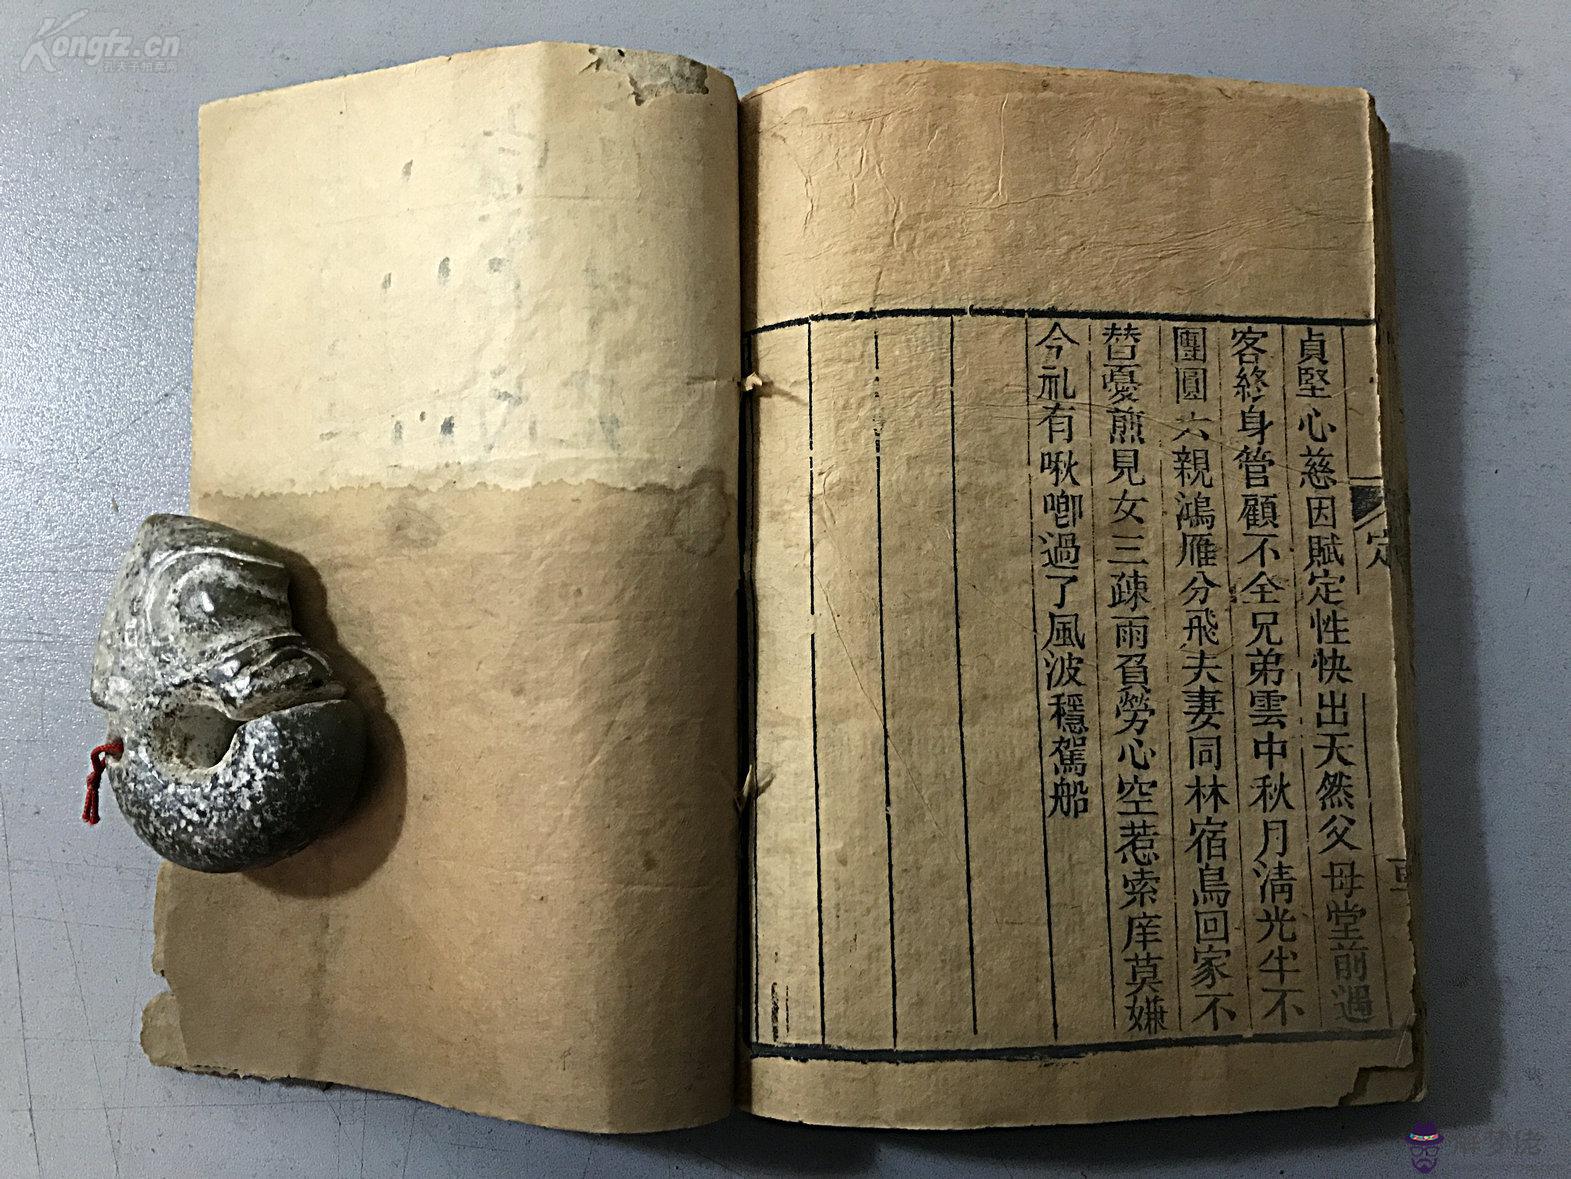 貞堅心慈因賦定性快出天然父母堂前遇
客終身管顧不全兄弟雲中秋月清光半不
團圓六親鴻雁分飛夫妻同林宿鳥回家不
替憂煎見女三疎雨負勞心空惹索庠莫嫌
今礼有啾唧過了風波穩駕船
定
Kongfz.cn